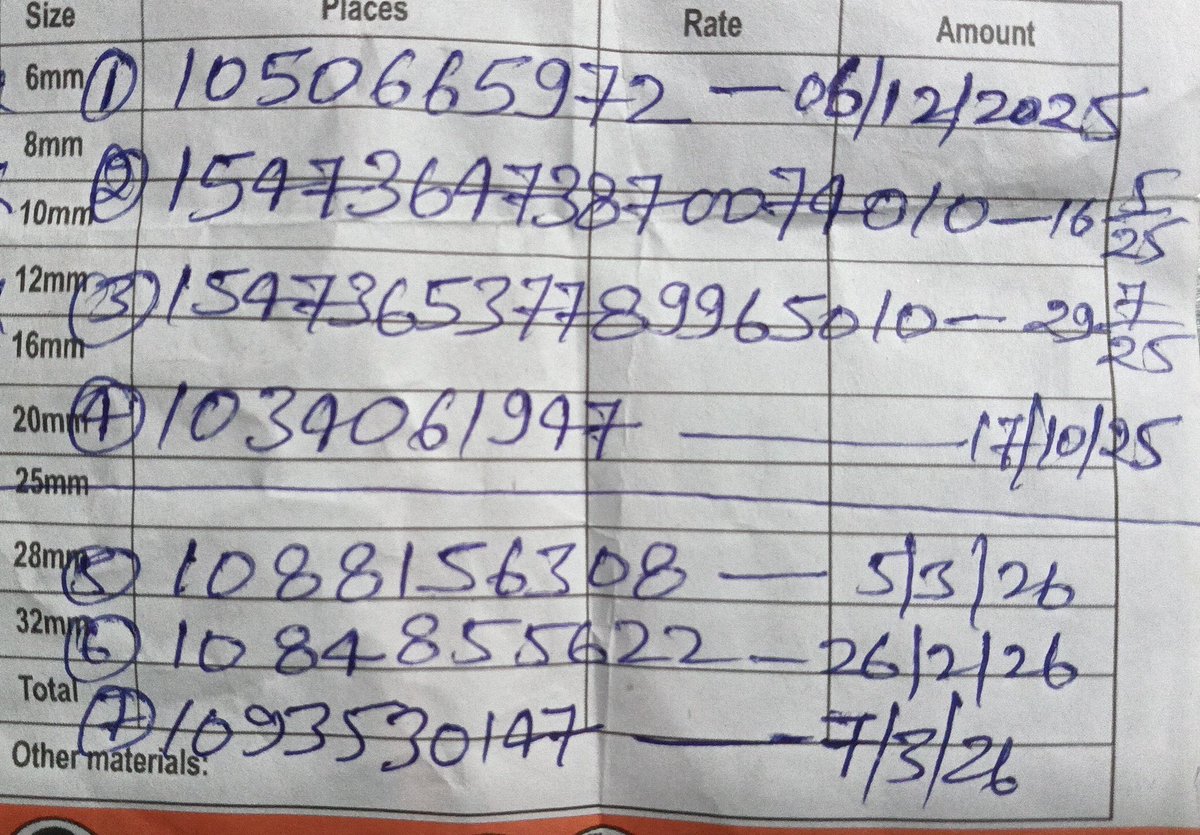 Size Places Rate Amount
6mm ① 1050665972 — 06/12/2025
8mm
10mm ② 154736473870074010 — 16 5/25
12mm ③ 154736537789965010 — 29 7/25
16mm
20mm ④ 1034061947 — 17/10/25
25mm
28mm ⑤ 1088156308 — 5/3/26
32mm ⑥ 1084855622 — 26/2/26
Total ⑦ 1093530147 — 7/3/26
Other materials: